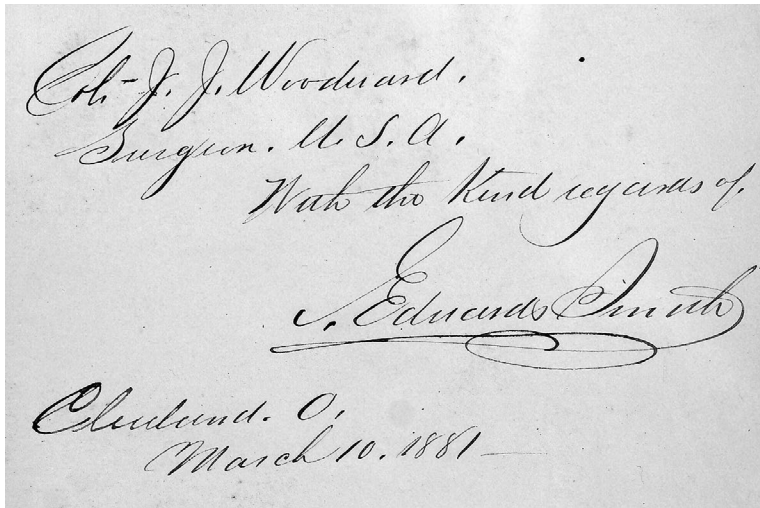 Col. J. J. Woodward.
Surgeon. U. S. A.
With the Kind regards of.
J. Edwards Smith
Cleveland. O.
March 10. 1881